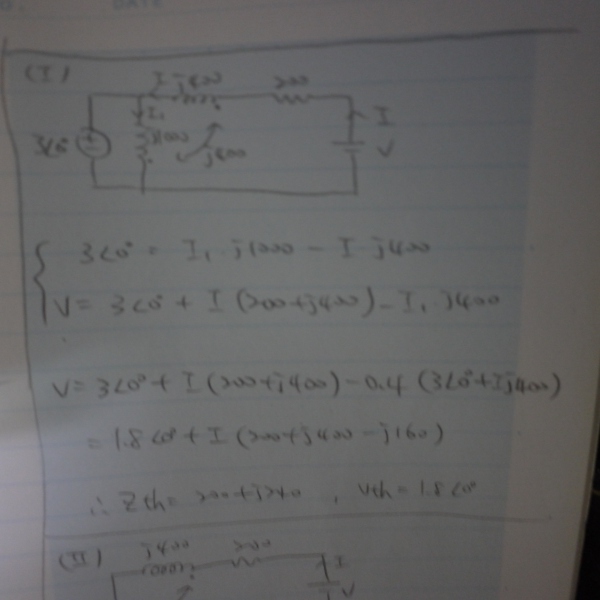 DATE
(I)
I j400 200
3∠0° I₁ j1000 j400 I V
3∠0° = I₁ j1000 - I j400
V = 3∠0° + I (200+j400) - I₁ j400
V = 3∠0° + I (200+j400) - 0.4 (3∠0° + Ij400)
= 1.8∠0° + I (200+j400-j160)
∴ Zth = 200+j240 , Vth = 1.8∠0°
(II) j400 200 I
V